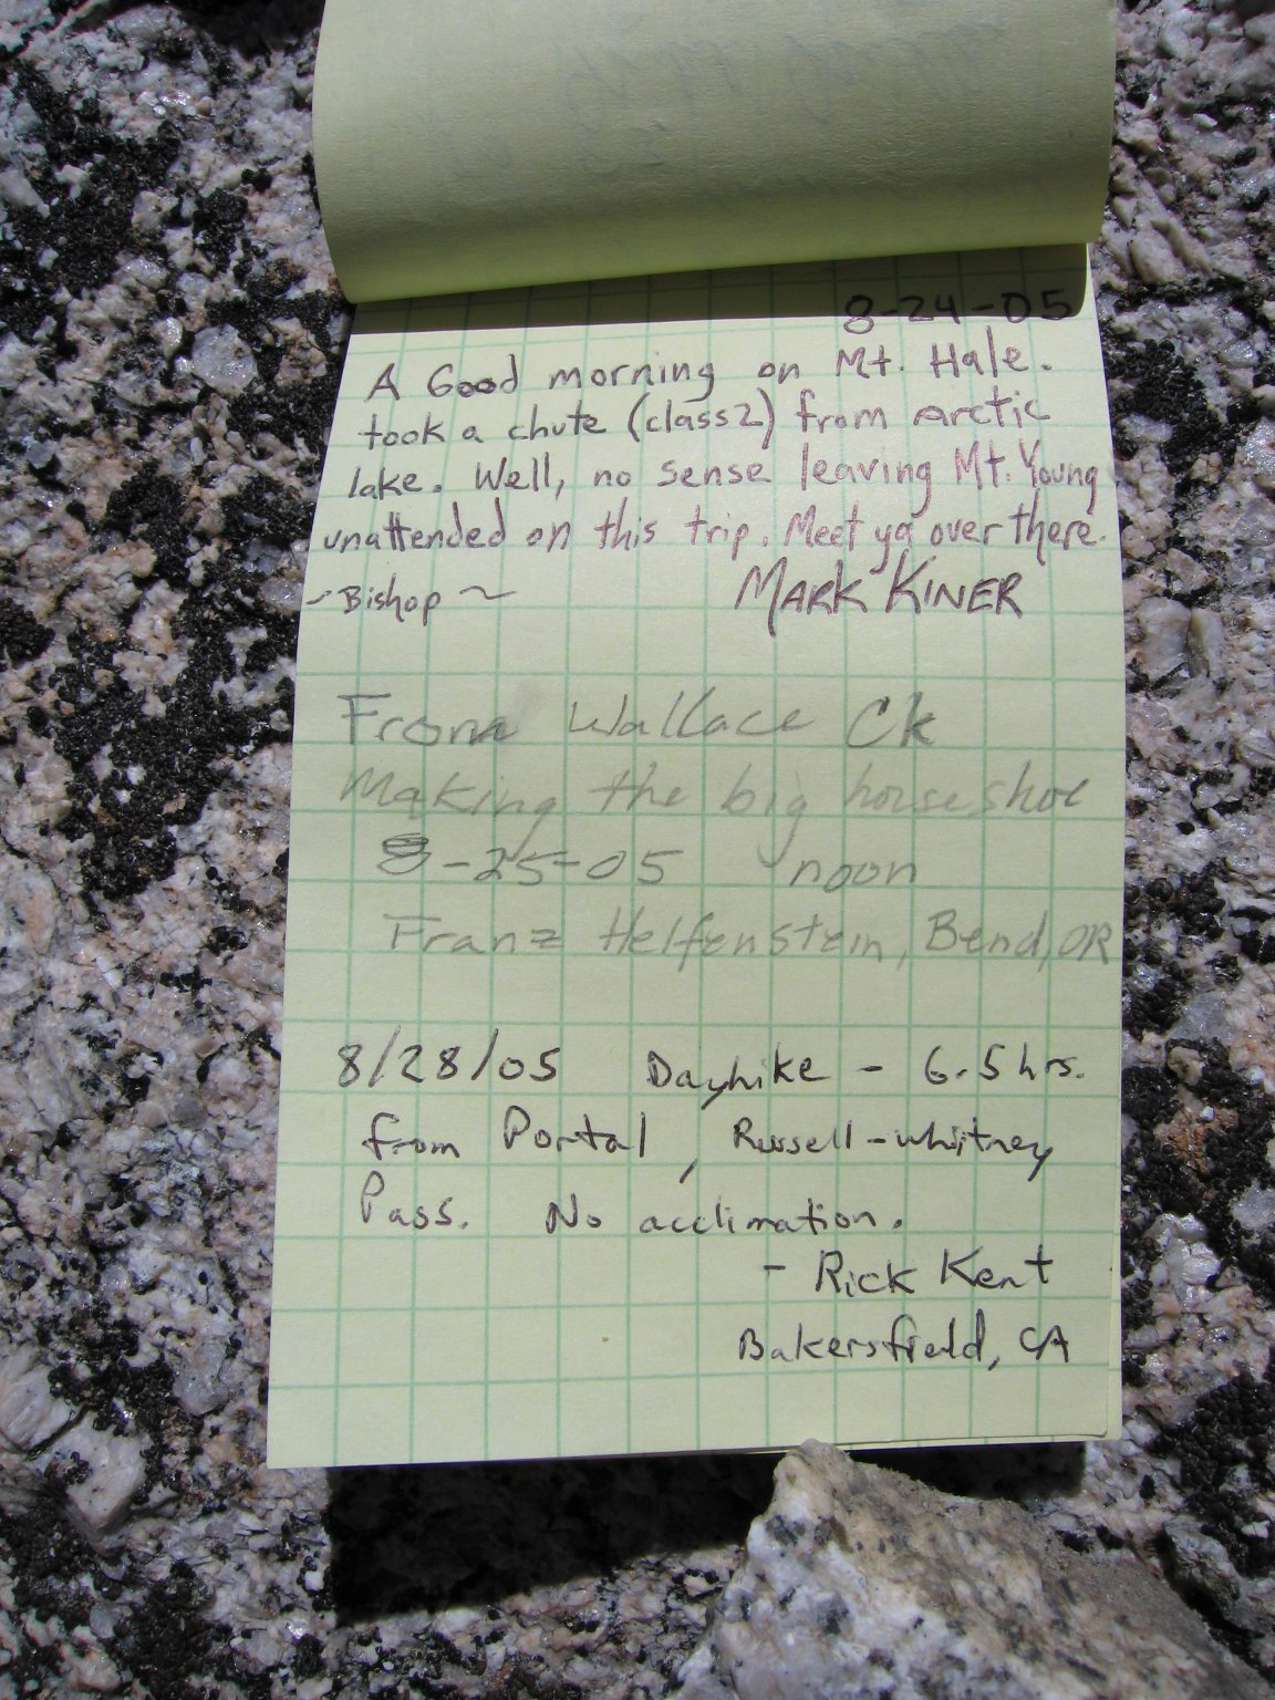 8-24-05
A Good morning on Mt. Hale.
took a chute (class 2) from Arctic
lake. Well, no sense leaving Mt. Young
unattended on this trip. Meet ya over there.
~ Bishop ~ MARK KINER
From Wallace Ck
Making the big horseshoe
8-25-05 noon
Franz Helfenstein, Bend, OR
8/28/05 Dayhike - 6.5 hrs.
from Portal, Russell-Whitney
Pass. No acclimation.
- Rick Kent
Bakersfield, CA